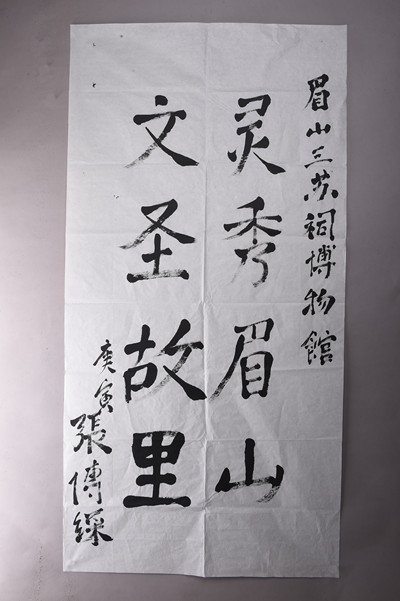 眉山三苏祠博物馆
灵秀眉山
文圣故里
庚寅張傳綵